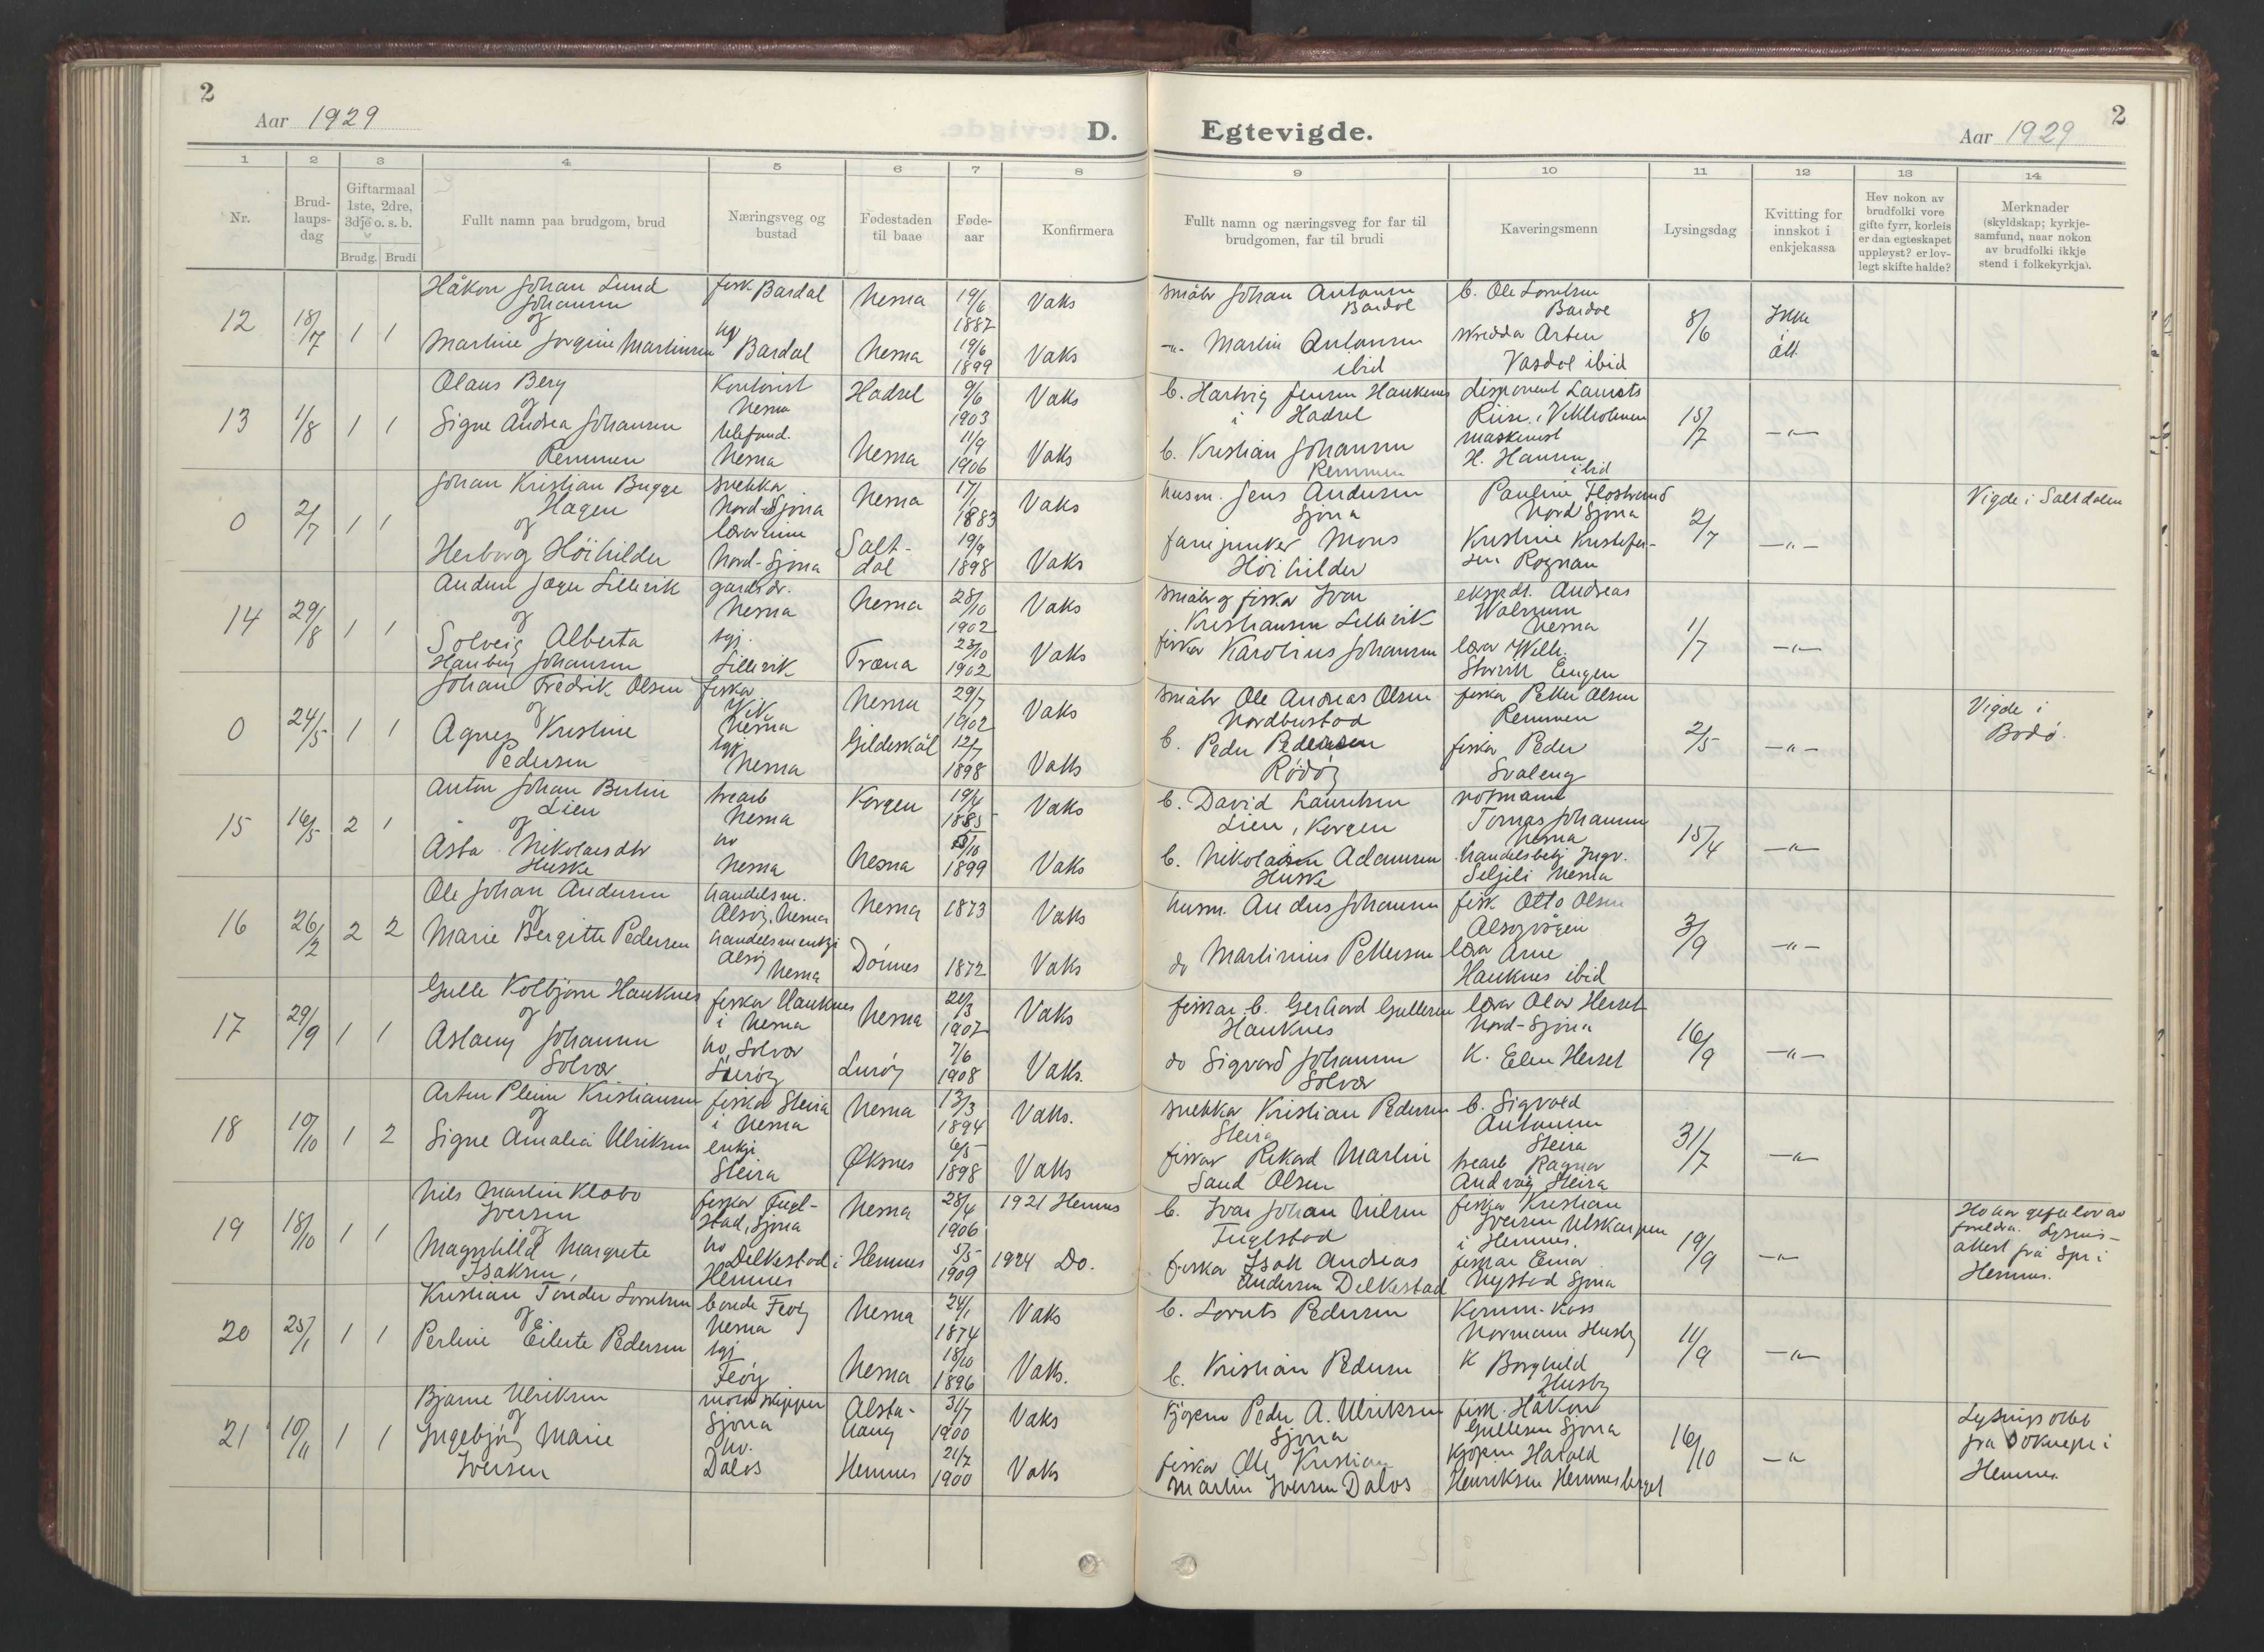 2
Aar 1929
D.
1 2 3 4 5 6 7 8
Nr.
Brud-
laups-
dag
Giftarmaal
1ste, 2dre,
3dje o. s. b.
Brudg. Brudi
Fullt namn paa brudgom, brud
Næringsveg og
bustad
Fødestaden
til baae
Føde-
aar
Konfirmera
12 18/7 1 1
Håkon Johan Lund
Johansen
og
Martine Jorgine Martinsen
fisk Bardal
Bardal
Nesna
Nesna
19/6
1887
19/6
1899
Vaks
Vaks
13 1/8 1 1
Olaus Berg
og
Signe Andrea Johansen
Remmen
Kontorist
Nesna
telefond.
Nesna
Hadsel
Nesna
9/6
1903
11/9
1906
Vaks
Vaks
0 2/7 1 1
Johan Kristian Bugge
Hagen
og
Herborg Høihilder
snekker
Nord-Sjona
lærarinne
Nord-Sjona
Nesna
Salt-
dal
1883
19/9
1898
Vaks
Vaks
14 29/8 1 1
og
Solveig Alberta
Hanberg Johansen
gardsdr.
Nesna
Lillevik
Nesna
Træna
28/10
1902
23/10
1902
Vaks
Vaks
0 24/5 1 1
Johan Fredrik Olsen
og
Agnes Kristine
Pedersen
fiskar
Vik
Nesna
Nesna
Nesna
Gildeskål
29/7
1902
12/7
1898
Vaks
Vaks
15 16/5 2 1
Anton Johan Bertin
Lien
og
Asta Nikolaisdtr
Huske
trearb
Nesna
ho
Nesna
Korgen
Nesna
19/4
1885
1899
Vaks
Vaks
16 26/2 2 2
Ole Johan Andersen
og
Marie Bergitte Pedersen
handelsm.
Alsøy, Nesna
handelsmenkje
Alsøy
Nesna
Nesna
Dønnes
1873
1872
Vaks
Vaks
17 29/9 1 1
Gulle Kolbjørn Hauknes
og
Aslaug Johansen
Solvær
fiskar Hauknes
i Nesna
ho, Solvær
Lurøy
Nesna
Lurøy
21/3
1907
7/6
1908
Vaks
Vaks.
18 10/10 1 2
Artur Pleim Kristiansen
og
Signe Amalia Ulriksen
fiskar Steira
i Nesna
enkje
Steira
Nesna
Øksnes
13/3
1894
6/5
1898
Vaks.
Vaks
19 18/10 1 1
Nils Martin Klobo
Iversen
og
Magnhild Margrete
Isaksen,
fiskar Fugl-
stad, Sjona
ho
Delkestad i
Hemnes
Nesna
Hemnes
28/4
1906
5/5
1909
1921 Hemnes
1924 Do.
20 25/1 1 1
Kristian Tønder Lorntsen
og
Perline Eilerte Pedersen
bonde Feøy
Nesna
Feøy
Nesna
Nesna
24/1
1874
18/10
1896
Vaks
Vaks.
21 10/11 1 1
Bjarne Ulriksen
og
Ingebjørg Marie
Iversen
motorskipper
Sjona
ho.
Dalos
Alsta-
haug
Hemnes
31/7
1900
21/7
1900
Vaks
Vaks
2
Egtevigde.
Aar 1929
9 10 11 12 13 14
Fullt namn og næringsveg for far til
brudgomen, far til brudi
Kaveringsmenn
Lysingsdag
Kvitting for
innskot i
enkjekassa
Hev nokon av
brudfolki vore
gifte fyrr, korleis
er daa egteskapet
uppløyst? er lov-
legt skifte halde?
Merknader
(skyldskap; kyrkje-
samfund, naar nokon
av brudfolki ikkje
stend i folkekyrkja).
småbr Johan Antonsen
Bardal
-"- Martin Antonsen
ibid
b. Ole Lorntsen
Bardal
Artur
Vasdal ibid
8/6
Ikke
ått
b. Hartvig Jensen Haukenes
i Hadsel
b. Kristian Johansen
Remmen
disponent Laurits
Riise, Vikholmen
maskinist
H. Hansen
ibid
15/7
-"-
husm. Jens Andersen
Sjona
fanejunker Mons
Høihilder
Pauline Flostrand
Nord Sjona
Kristine Kristofer-
sen Rognan
2/7
-"-
Vigde i Saltdalen
småbr og fiskar Ivar
Kristiansen Lillevik
fiskar Karolius Johansen
eksped. Andreas
Walnum
Nesna
lærar Wilh.
Storvik Eugen
1/7
-"-
småbr Ole Andreas Olsen
Nordbustad
b. Peder Pedersen
Rødøy
fiskar Petter Olsen
Remmen
fiskar Peder
Svaleng
2/5
-"-
Vigde i
Bodø.
b. David Lauritsen
Lien, Korgen
b. Nikolai Adamsen
Huske
Tomas Johansen
Nesna
handelsbetj Ingv.
Seljeli Nesna
15/4
-"-
husm. Anders Johansen
do Martinius Pettersen
fisk Otto Olsen
Alsøyvågen
lærar Arne
Hauknes ibid
3/9
-"-
fiskar b. Gerhard Gullesen
Hauknes
do Sigvard Johansen
Solvær
lærar Olav Herset
Nord-Sjona
K. Elen Herset
16/9
-"-
snekkar Kristian Pedersen
Steira
fiskar Rikard Martin
Sand Olsen
b. Sigvald
Antonsen
Steira
trearb Ragnar
Andvåg Steira
31/7
-"-
b. Ivar Johan Nilsen
Fuglstad
fiskar Isak Andreas
Andersen Delkestad
fiskar Kristian
Iversen Utskarpen
i Hemnes.
fiskar Einar
Nystad Sjona
19/9
-"-
foreldra. Lysnis-
attest frå Spr i
Hemnes.
b. Lornts Pedersen
b. Kristian Pedersen
Komm. Kass
Normann Husby
K Borghild
Husby
11/9
-"-
kjøpm Peder A. Ulriksen
Sjona
fiskar Ole Kristian
Martin Iversen Dalos
fisk. Håkon
Gullesen Sjona
kjøpm Harald
Henriksen Hemnesberget
16/10
-"-
Lysnings attest
frå Sokneprest i
Hemnes.